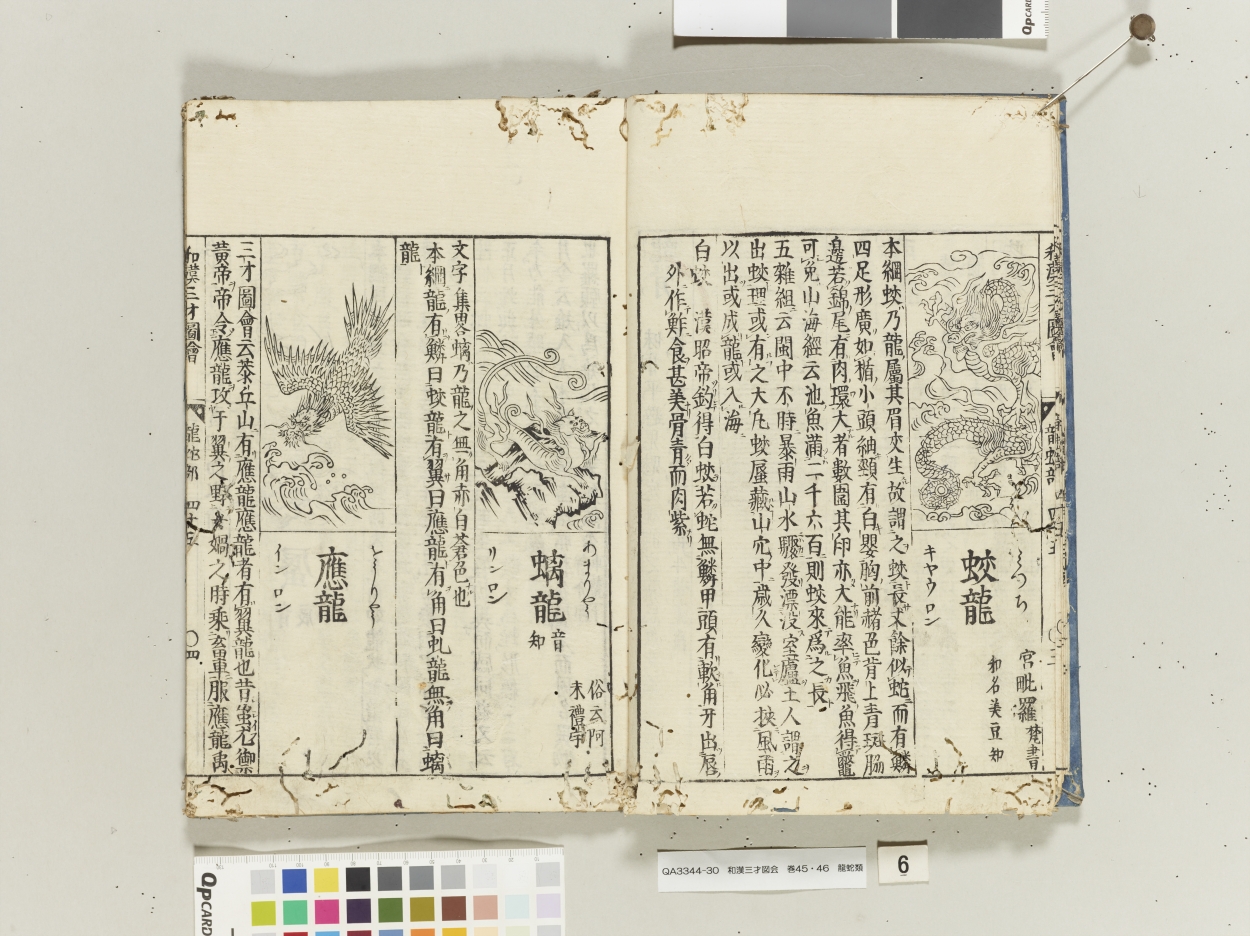 和漢三才圖會
龍蛇部
蛟龍
みつち
キヤウロン
宮毗羅 梵書
和名美豆知
本綱蛟乃龍屬其眉交生故謂之蛟長丈餘似蛇而有鱗
四足形廣如楯小頭細頸有白嬰胸前赭色背上青斑脇
邊若錦尾有肉環大者數圍其卵亦大能率魚飛魚得鼈
可免山海經云池魚滿二千六百則蛟來爲之長
五雜組云閩中不時暴雨山水驟發漂没室廬土人謂之
出蛟理或有之大凡蛟蜃藏山穴中歳久變化必挾風雨
以出或成龍或入海
白蛟 漢昭帝釣得白蛟若蛇無鱗甲頭有軟角牙出唇
外作鮓食甚美骨青而肉紫
螭龍 音知
あまりやう
リンロン
俗云阿
末禮宇
文字集畧螭乃龍之無角赤白蒼色也
本綱龍有鱗曰蛟龍有翼曰應龍有角曰虬龍無角曰螭
龍
應龍
をうりやう
インロン
三才圖會云恭丘山有應龍應龍者有翼龍也昔蚩尤禦
黄帝帝令應龍攻于翼之野女媧之時乘畜車服應龍禹
和漢三才圖會
龍蛇部 四十五
〇四
QpCARD
QA3344-30 和漢三才図会 巻45・46 龍蛇類
6
QpCARD